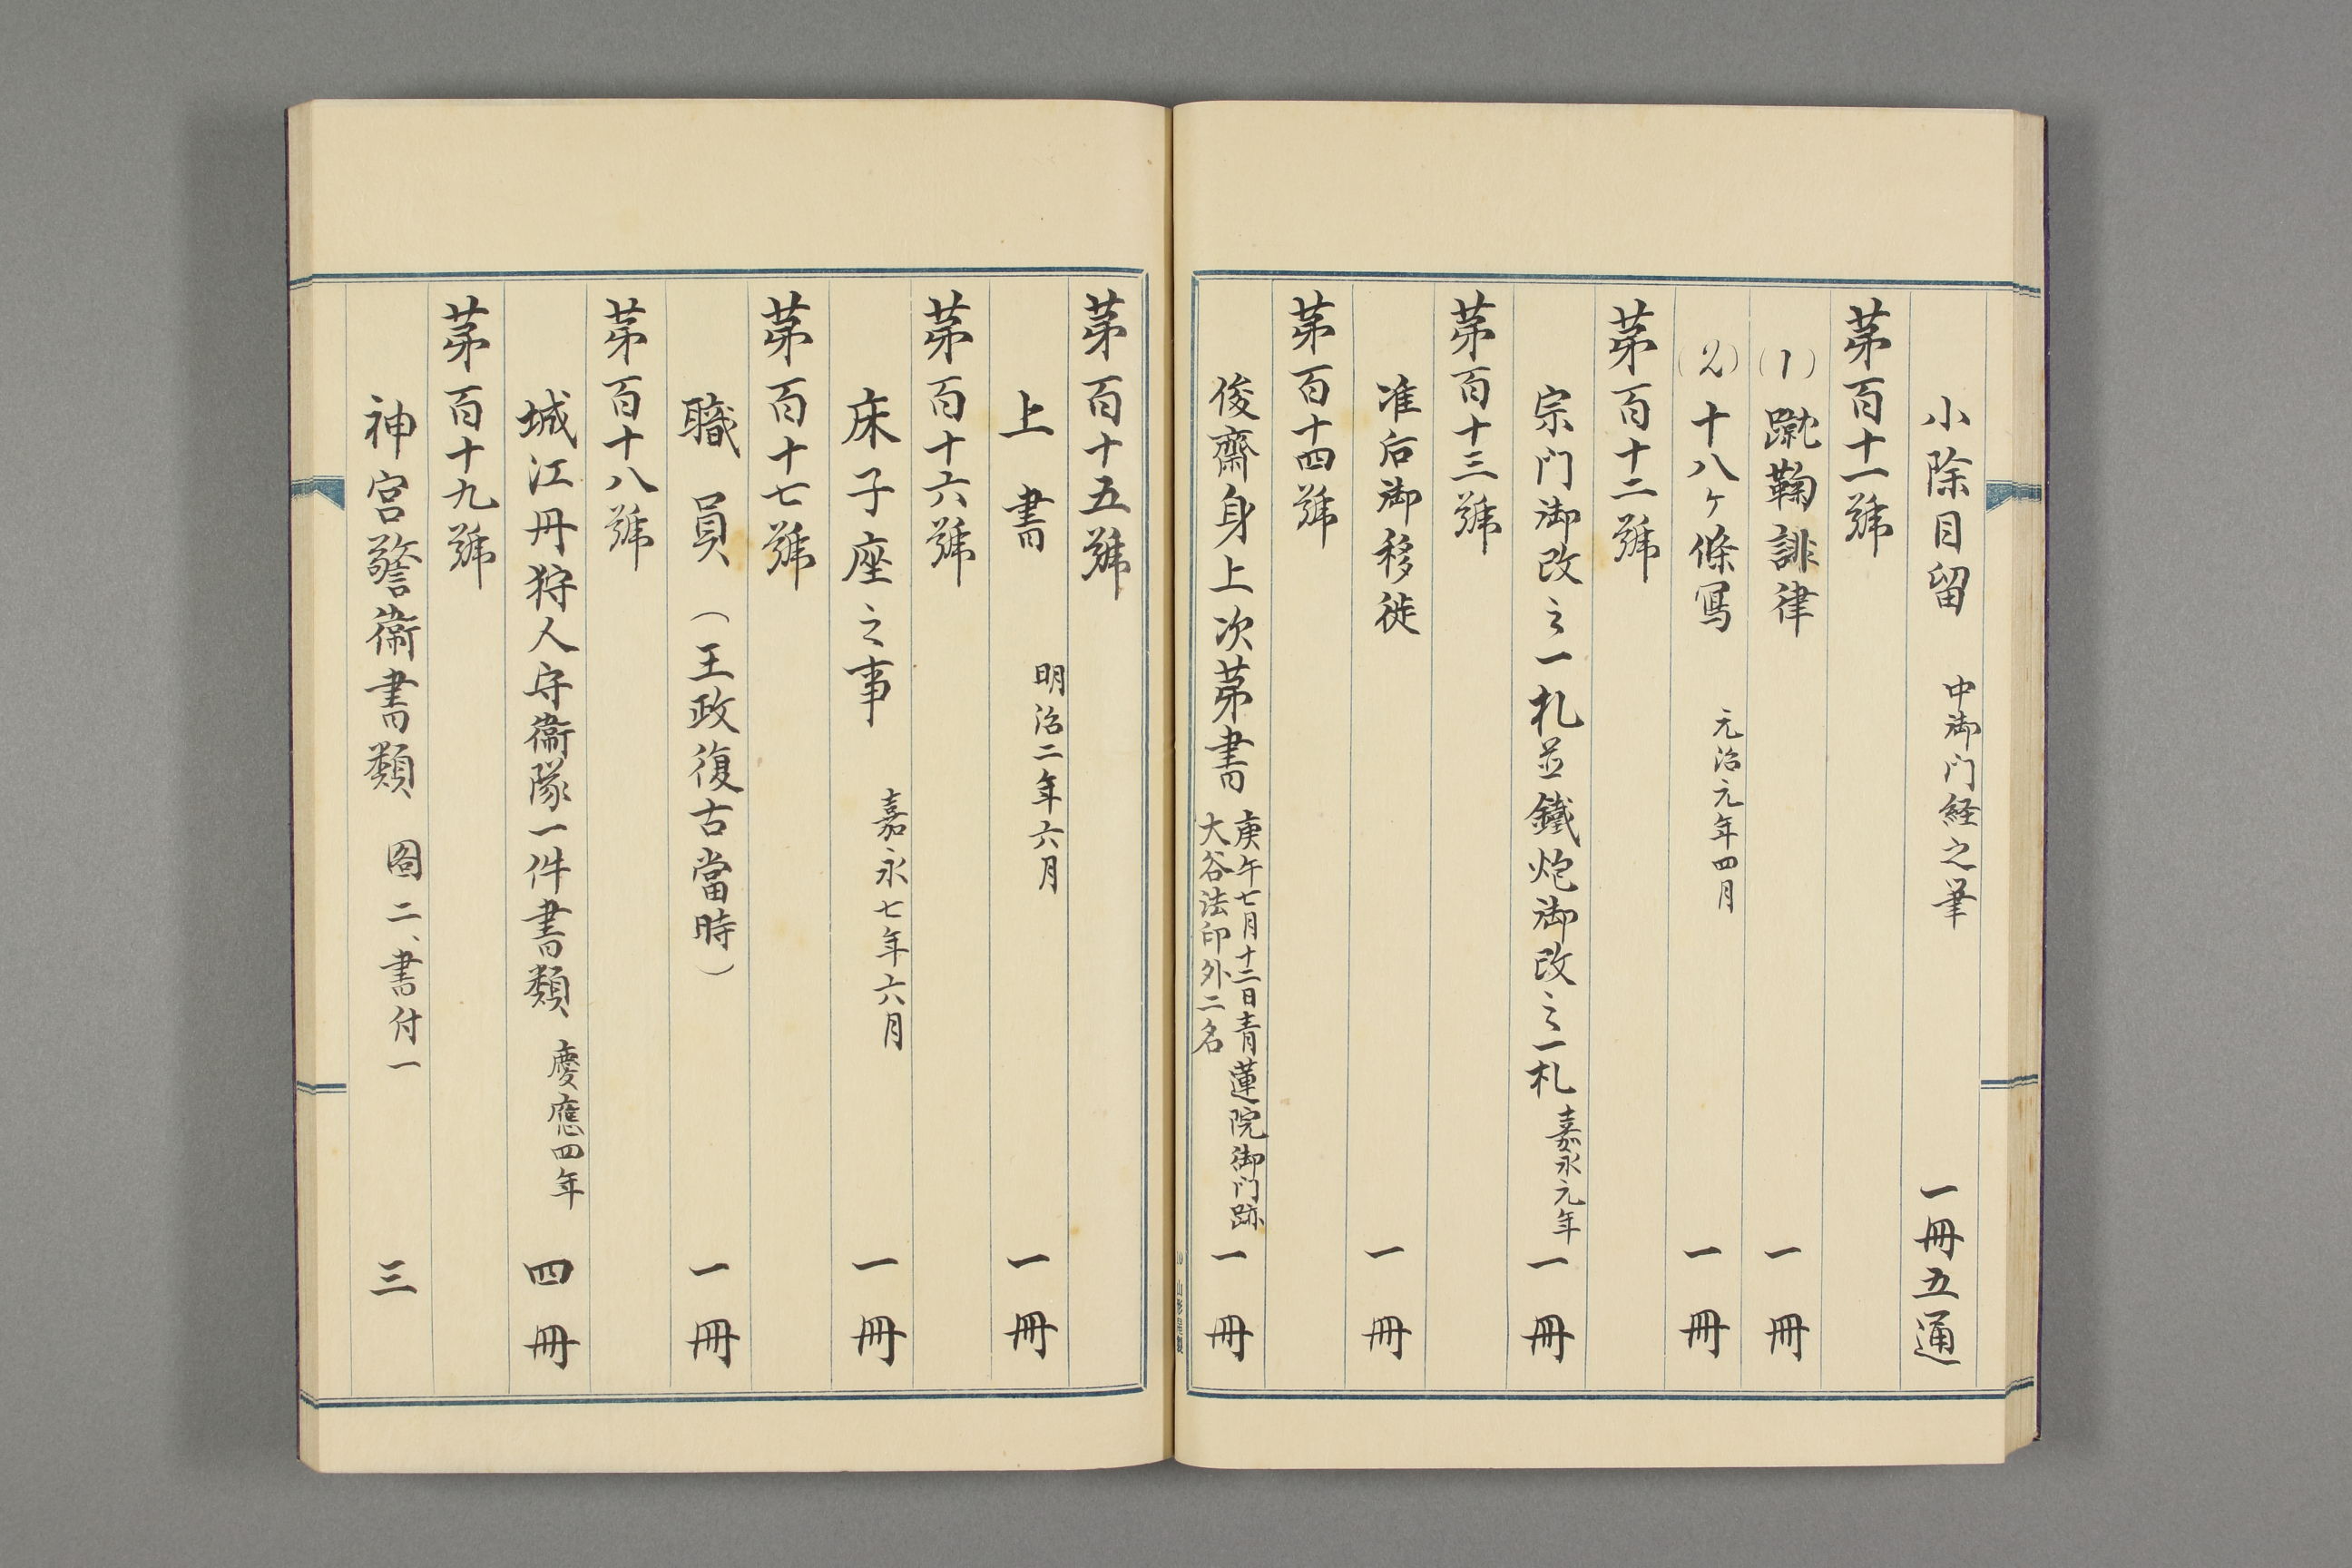 小除目留　中御門経之筆　一冊五通
第百十一號
(1) 蹴鞠誹律　一冊
(2) 十八ヶ條寫　元治元年四月　一冊
第百十二號
宗門御改之一札並鐵炮御改之一札　嘉永元年　一冊
第百十三號
准后御移徙　一冊
第百十四號
俊齋身上次第書　庚午七月十二日青蓮院御門跡　一冊
大谷法印外二名
第百十五號
上書　明治二年六月　一冊
第百十六號
床子座之事　嘉永七年六月　一冊
第百十七號
職員（王政復古當時）　一冊
第百十八號
城江丹狩人守衞隊一件書類　慶應四年　四冊
第百十九號
神宮警衞書類　圖二、書付一　三